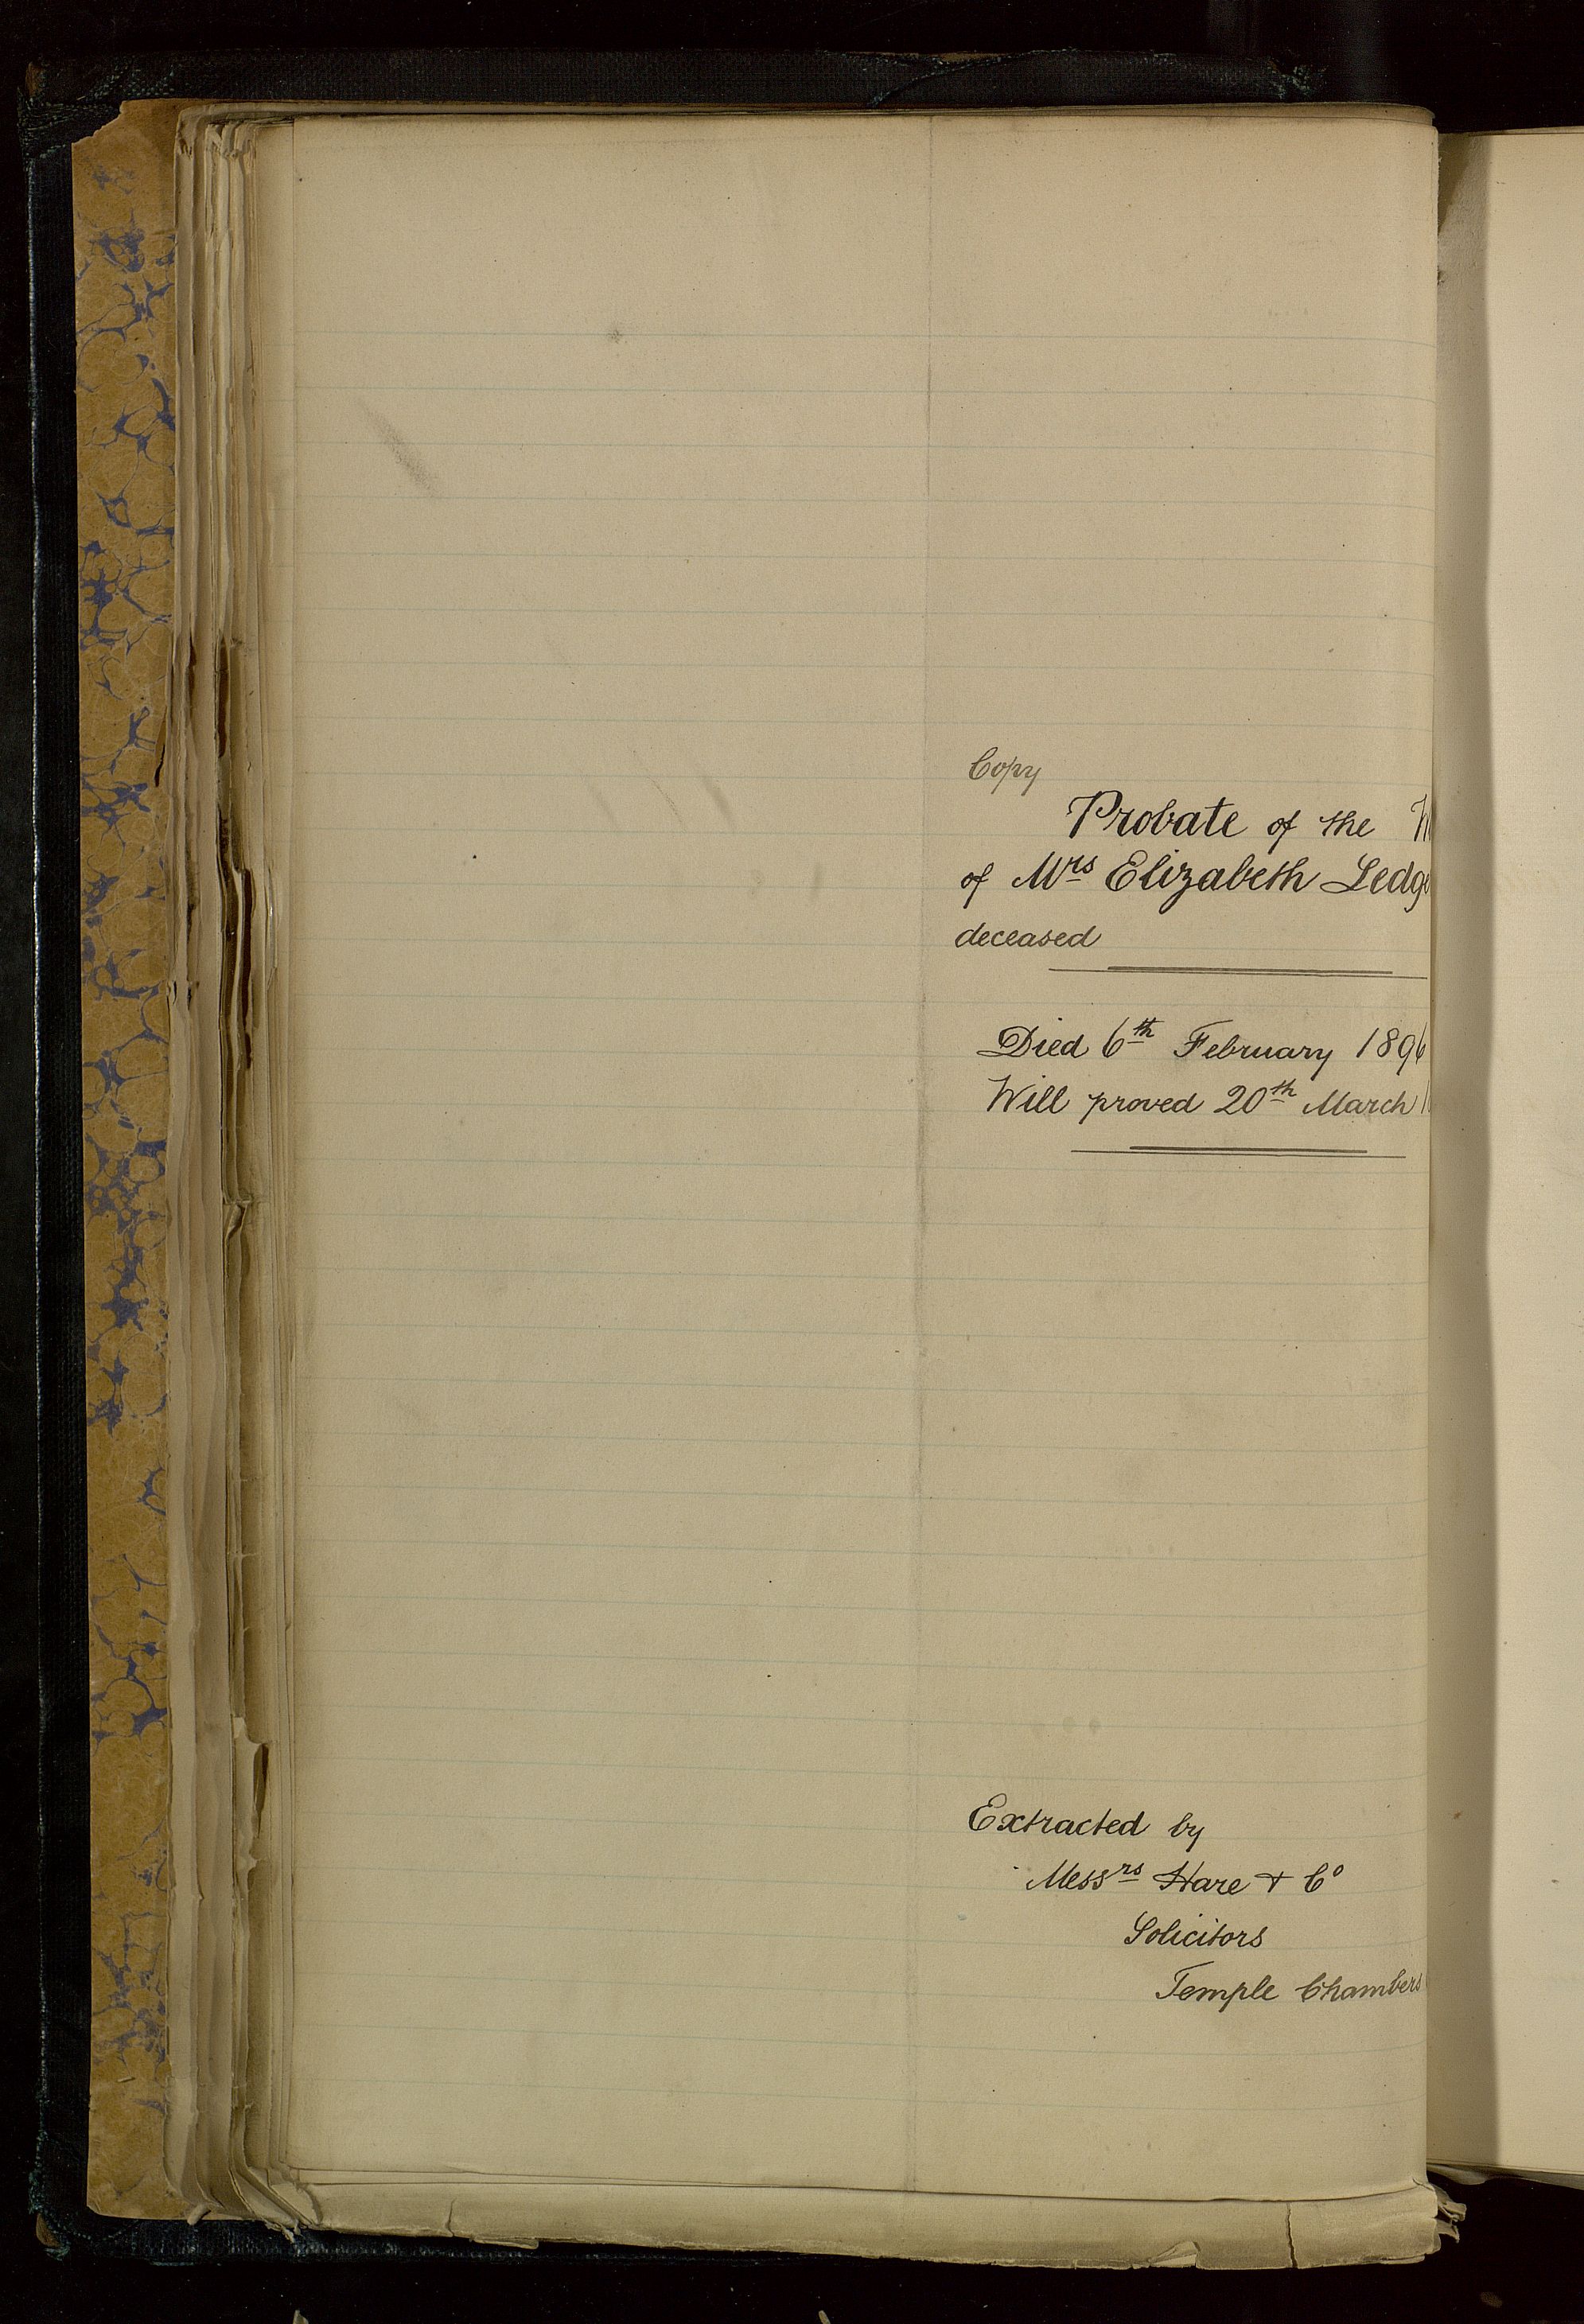 Copy
Probate of the
of Mrs Elizabeth
deceased
Died 6th February 1896
Will proved 20th March
Extracted by
Messrs Hare & Co
Solicitors
Temple Chambers